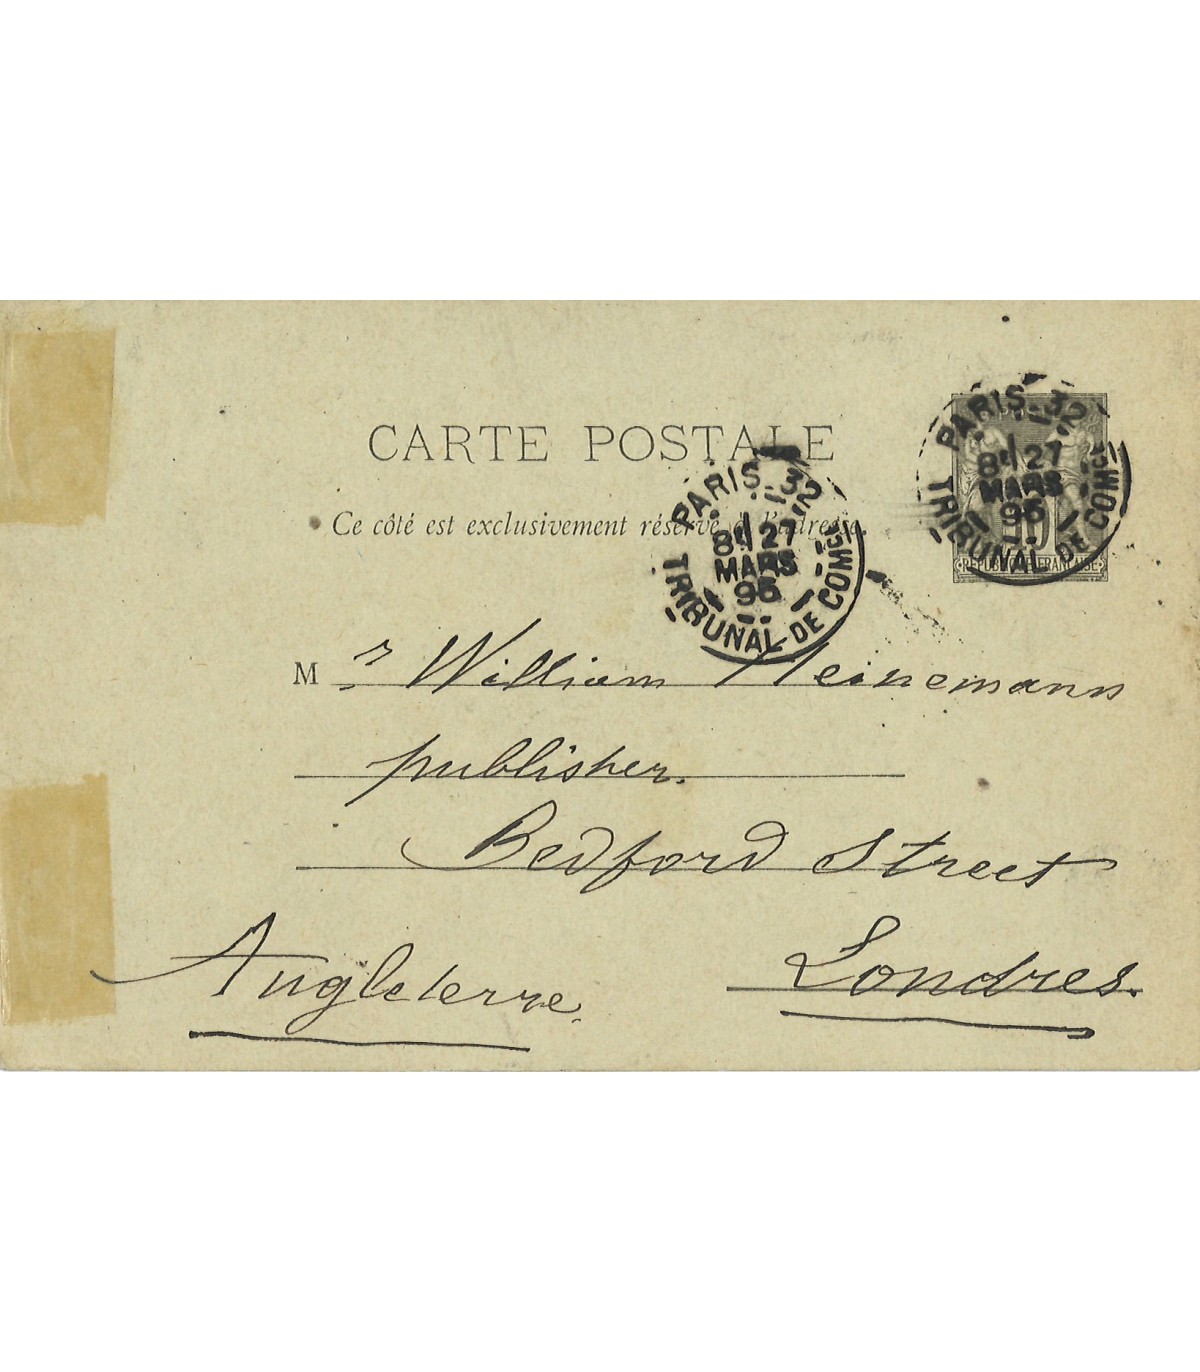 CARTE POSTALE
Ce côté est exclusivement réservé à l'adresse.
PARIS - 32
8E 27
MARS
95
TRIBUNAL DE COMCE
PARIS - 32
8E 27
MARS
95
TRIBUNAL DE COMCE
10
REPUBLIQUE FRANÇAISE
Mr William Heinemann
publisher.
Bedford Street
Londres.
Angleterre.